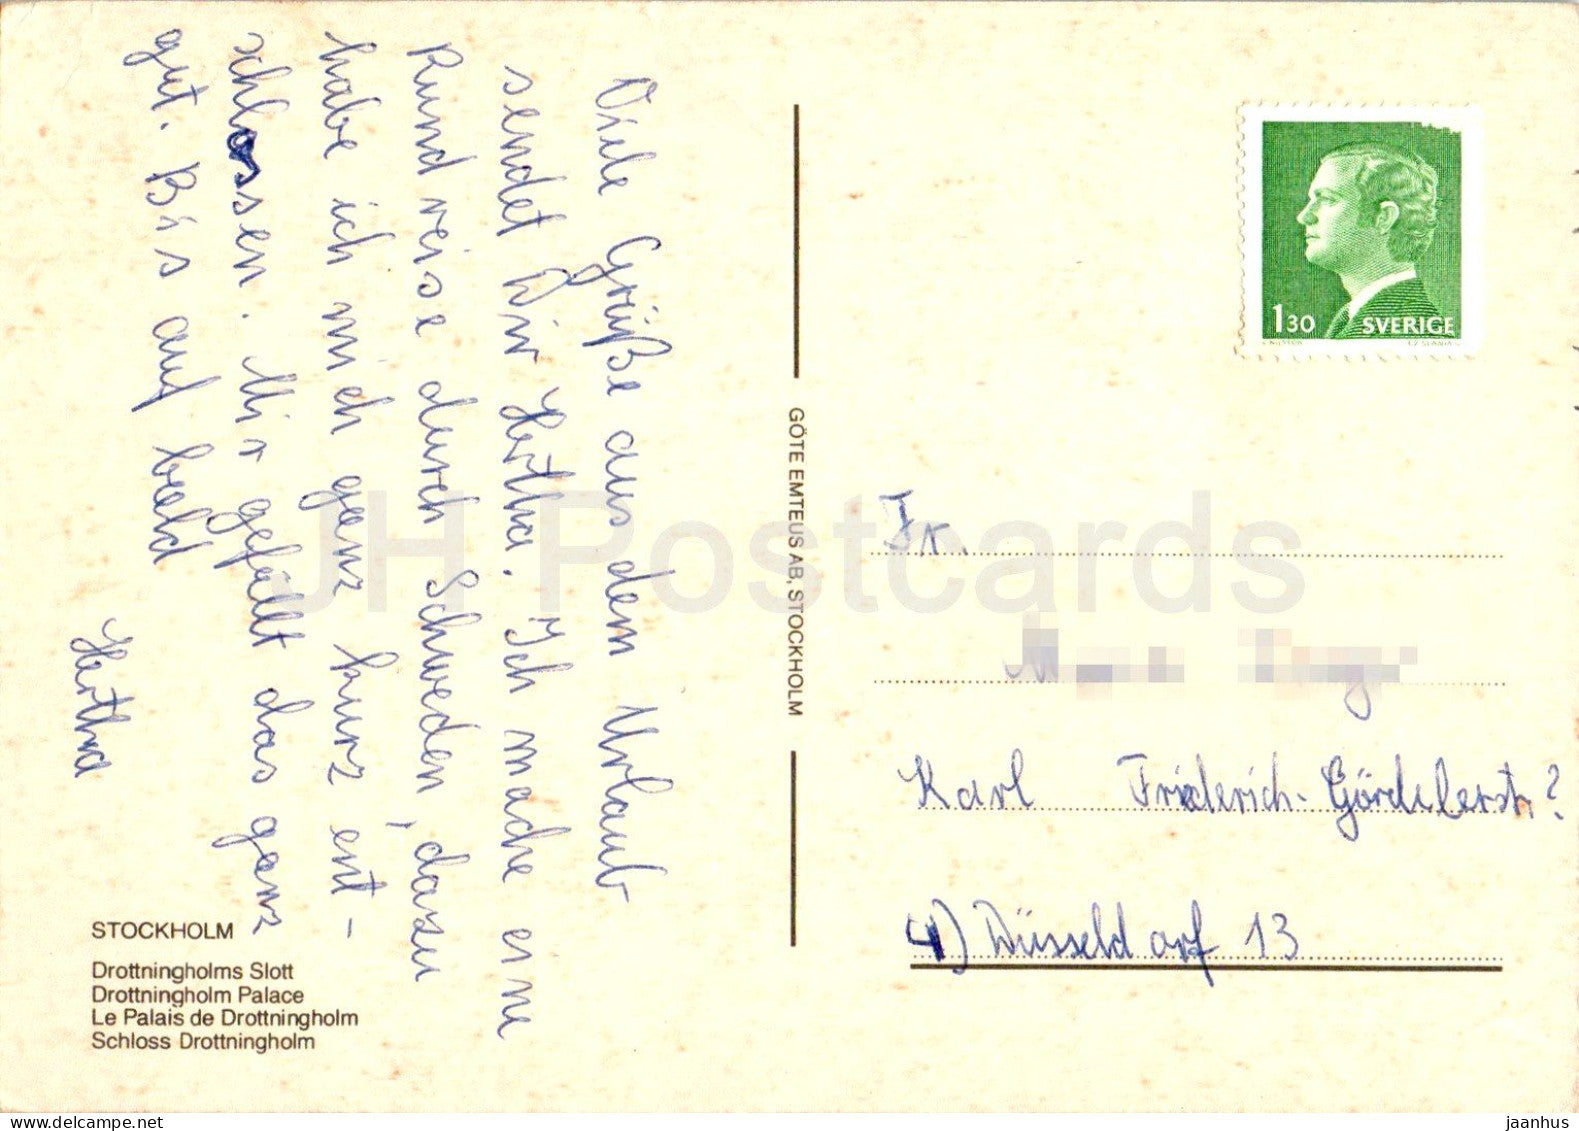 Viele Grüße aus dem Urlaub
sendet Dir Hertha. Ich mache eine
Rundreise durch Schweden, dazu
habe ich mich ganz kurz ent-
schlossen. Mir gefällt das ganz
gut. Bis auf bald
Hertha
STOCKHOLM
Drottningholms Slott
Drottningholm Palace
Le Palais de Drottningholm
Schloss Drottningholm
GÖTE EMTEUS AB, STOCKHOLM
1 30 SVERIGE
Fr.
Karl Friederich-Gördelerstr?
4) Düsseldorf 13
JH Postcards
jaanhus